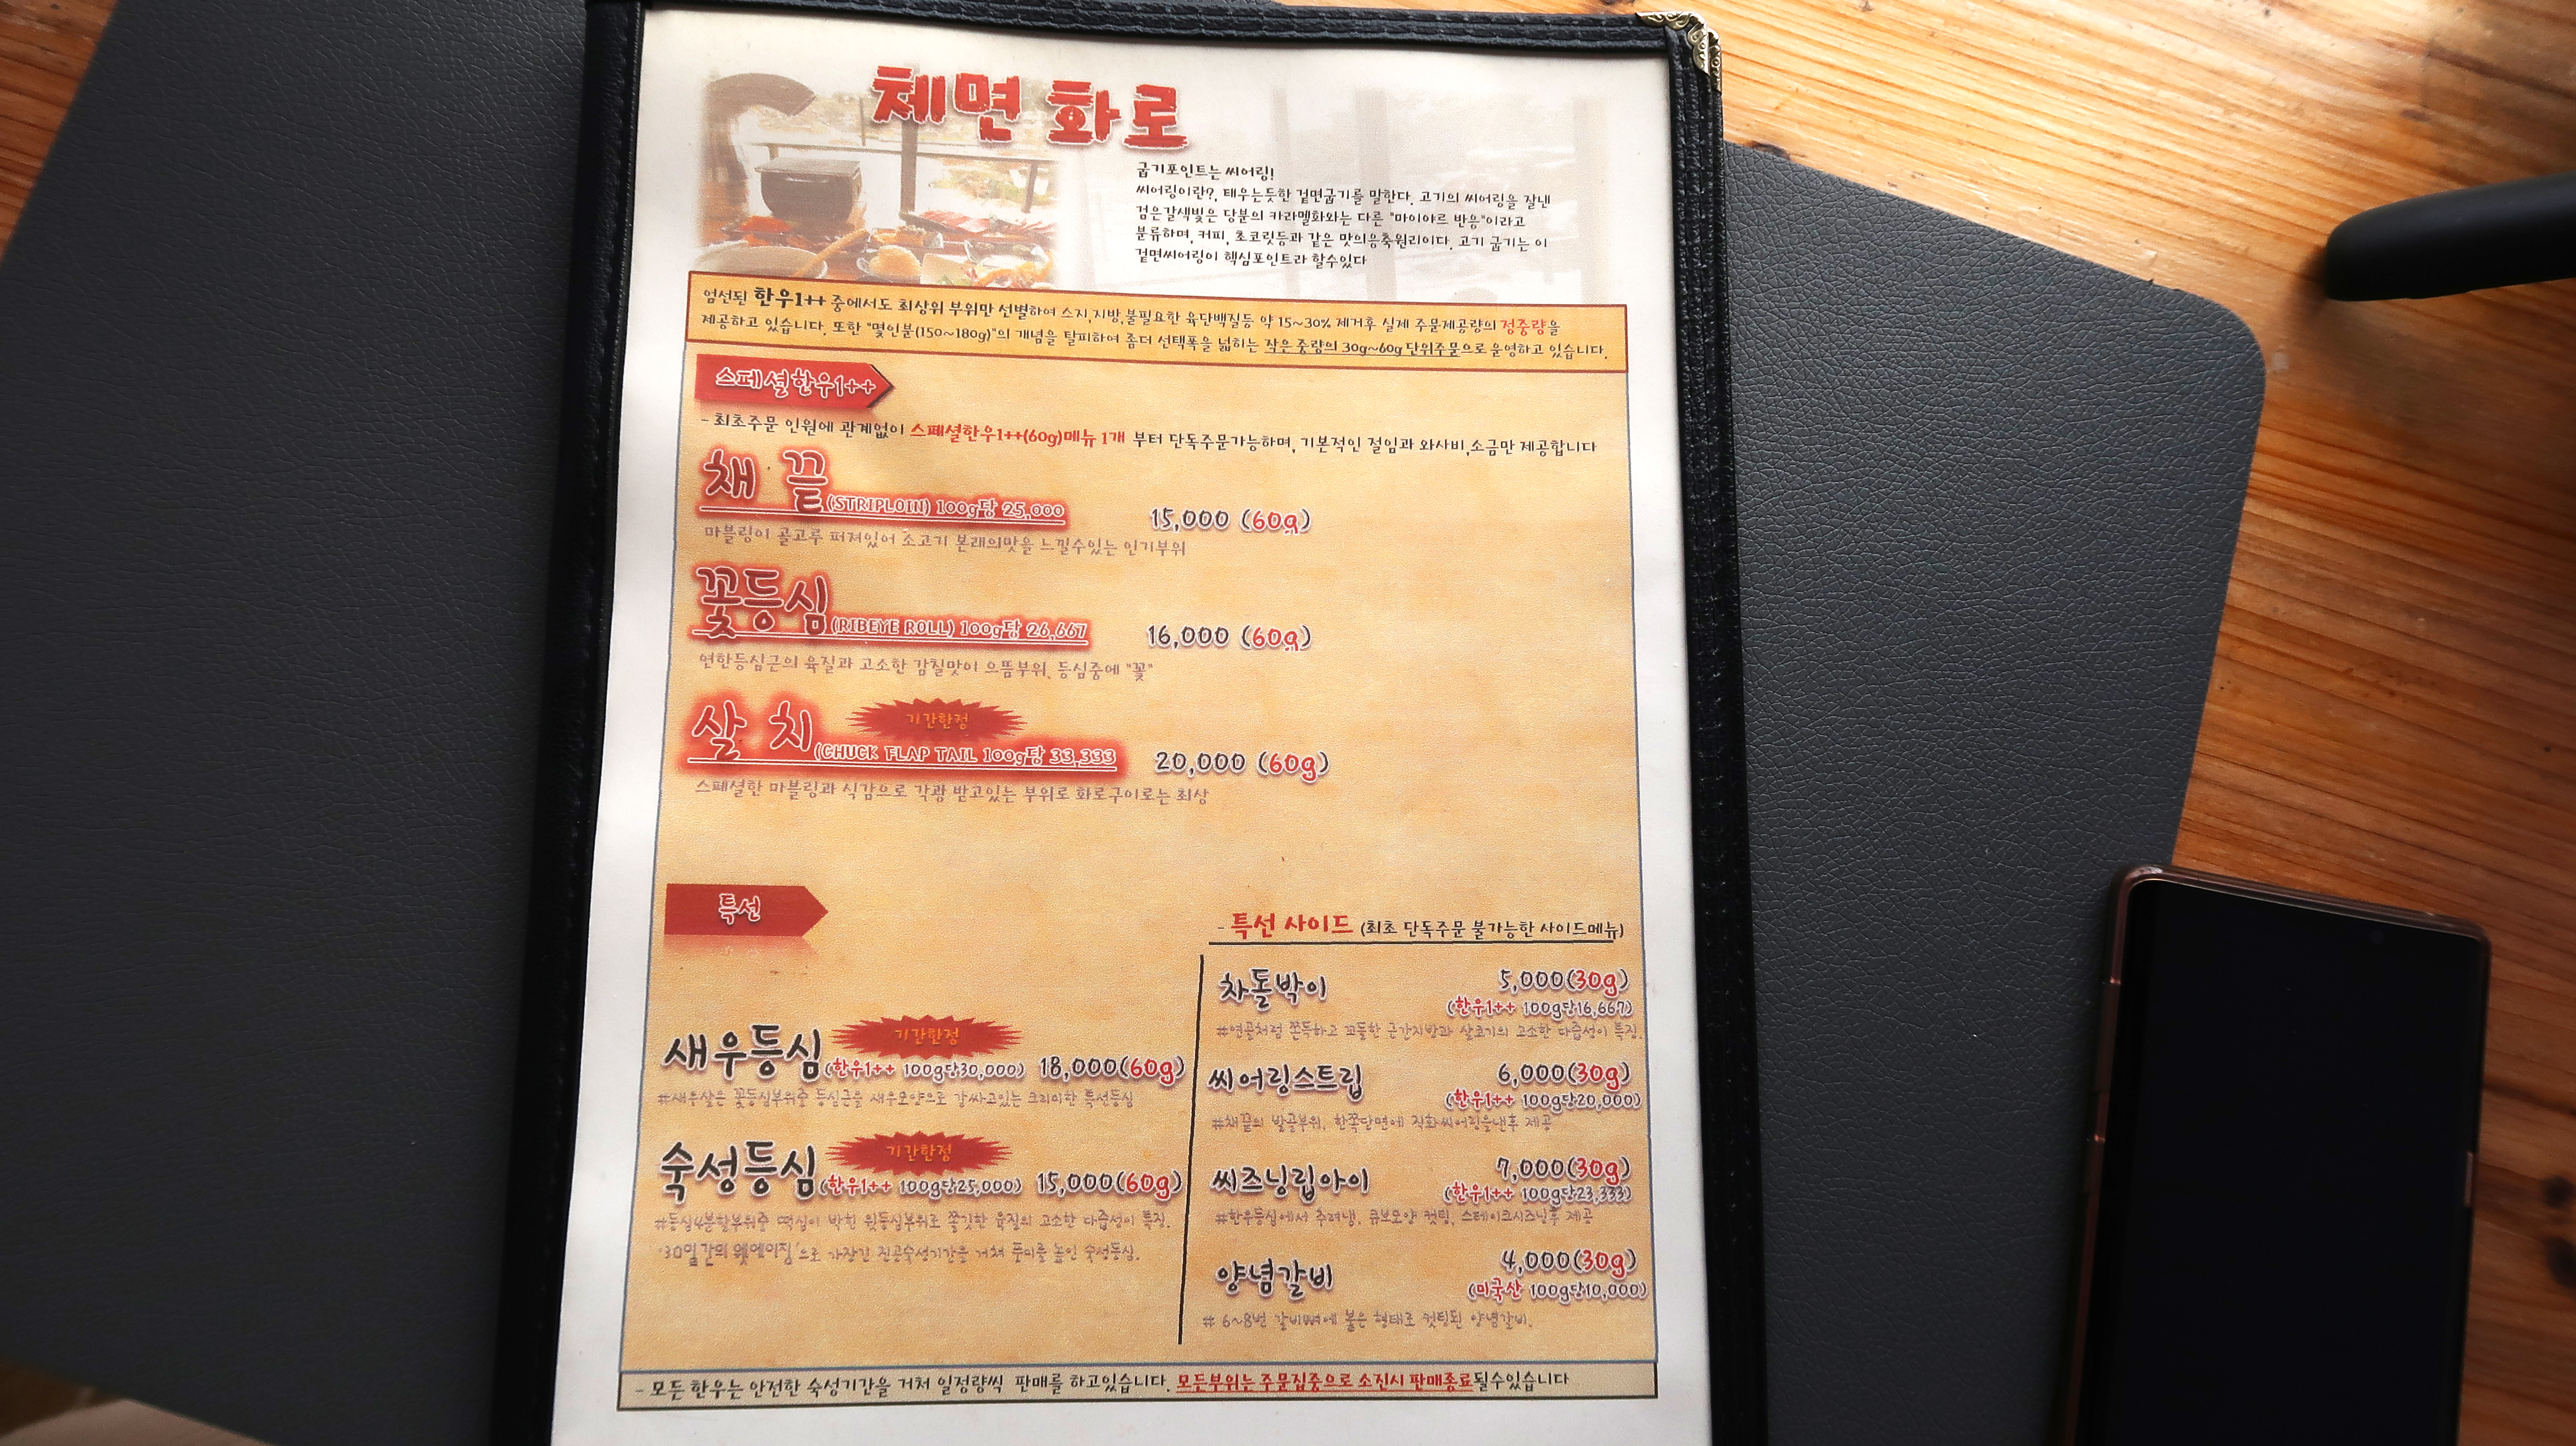 체면 화로
굽기포인트는 씨어링!
씨어링이란?, 태우는듯한 겉면굽기를 말한다. 고기의 씨어링을 잘낸
검은갈색빛은 당분의 카라멜화와는 다른 "마이야르 반응"이라고
분류하며, 커피, 초코릿등과 같은 맛의응축원리이다. 고기 굽기는 이
겉면씨어링이 핵심포인트라 할수있다
엄선된 한우1++ 중에서도 최상위 부위만 선별하여 스지,지방,불필요한 육단백질등 약 15~30% 제거후 실제 주문제공량의 정중량을
제공하고 있습니다. 또한 "몇인분(150~180g)"의 개념을 탈피하여 좀더 선택폭을 넓히는 작은 중량의 30g~60g 단위주문으로 운영하고 있습니다.
스페셜한우1++
- 최초주문 인원에 관계없이 스페셜한우1++(60g)메뉴 1개 부터 단독주문가능하며, 기본적인 절임과 와사비,소금만 제공합니다
채 끝(STRIPLOIN) 100g당 25,000 15,000 (60g)
마블링이 골고루 퍼져있어 소고기 본래의맛을 느낄수있는 인기부위
꽃등심(RIBEYE ROLL) 100g당 26,667 16,000 (60g)
연한등심근의 육질과 고소한 감칠맛이 으뜸부위. 등심중에 "꽃"
기간한정
살 치(CHUCK FLAP TAIL 100g당 33,333 20,000 (60g)
스페셜한 마블링과 식감으로 각광 받고있는 부위로 화로구이로는 최상
특선
기간한정
새우등심(한우1++ 100g당30,000) 18,000(60g)
#새우살은 꽃등심부위중 등심근을 새우모양으로 감싸고있는 크리미한 특선등심
기간한정
숙성등심(한우1++ 100g당25,000) 15,000(60g)
#등심4분할부위중 떡심이 박힌 윗등심부위로 쫄깃한 육질의 고소한 다즙성이 특징.
'30일간의 웻에이징'으로 가장긴 진공숙성기간을 거쳐 풍미를 높인 숙성등심.
- 특선 사이드 (최초 단독주문 불가능한 사이드메뉴)
차돌박이 5,000(30g)
(한우1++ 100g당16,667)
#연골처럼 쫀득하고 꼬돌한 근간지방과 살코기의 고소한 다즙성이 특징.
씨어링스트립 6,000(30g)
(한우1++ 100g당20,000)
#채끝의 발골부위. 한쪽단면에 직화씨어링을낸후 제공
씨즈닝립아이 7,000(30g)
(한우1++ 100g당23,333)
#한우등심에서 추려냉. 큐브모양 컷팅. 스테이크시즈닝후 제공
양념갈비 4,000(30g)
(미국산 100g당10,000)
# 6~8번 갈비뼈에 붙은 형태로 컷팅된 양념갈비.
- 모든 한우는 안전한 숙성기간을 거쳐 일정량씩 판매를 하고있습니다. 모든부위는 주문집중으로 소진시 판매종료될수있습니다